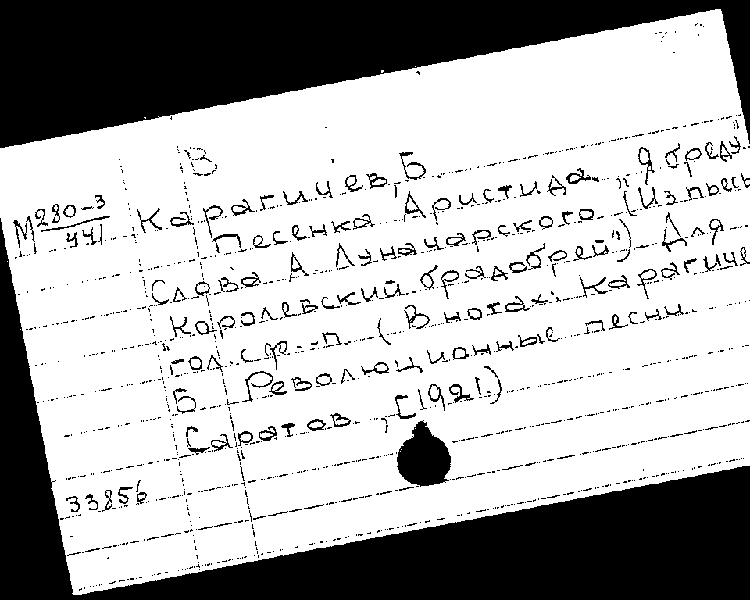 В
М 280-3
441
Карагичев, Б.
Песенка Аристида „Я бреду"
Слова А Луначарского (Из пьесы
"Королевский брадобрей") Для
гол. с ф.-п. (В нотах: Карагиче
Б Революционные песни
Саратов, [1921.)
33856